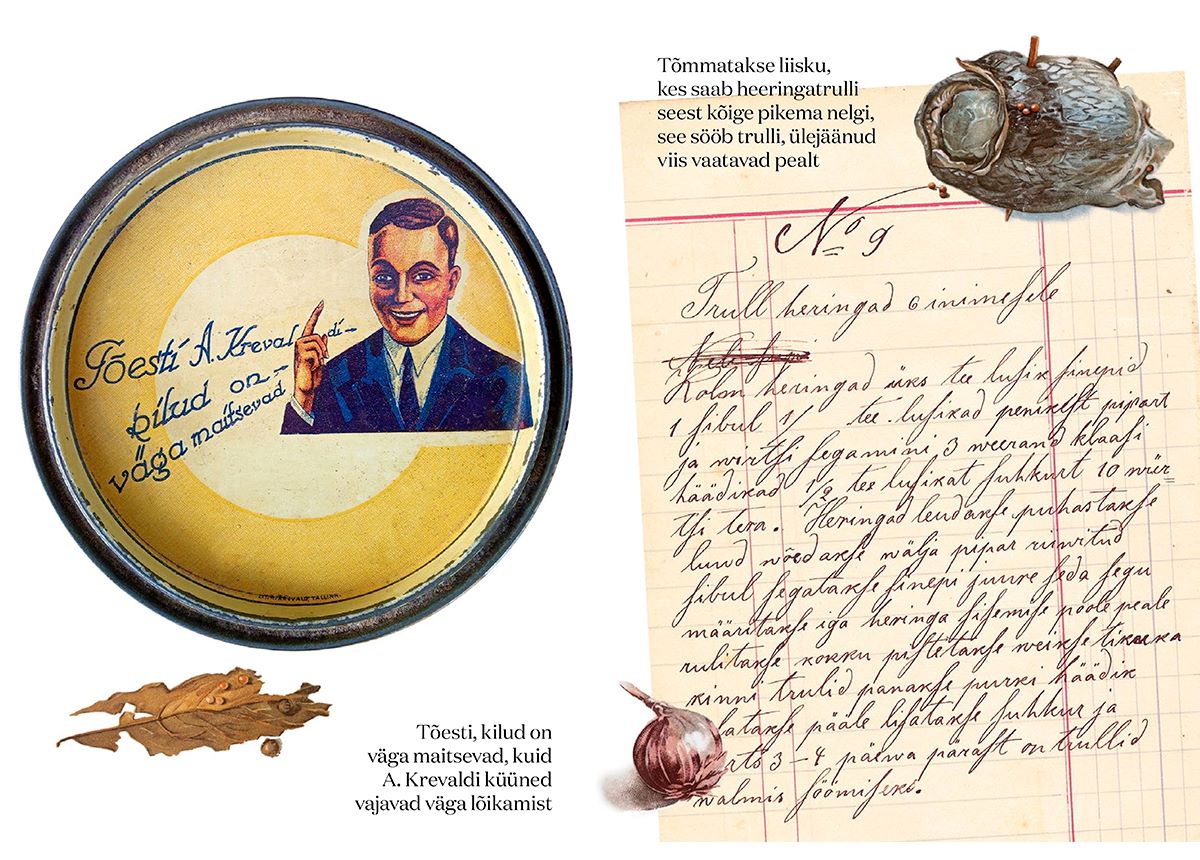 Tõesti A. Krevaldi-
kilud on-
väga maitsevad
Tõesti, kilud on
väga maitsevad, kuid
A. Krevaldi küüned
vajavad väga lõikamist
Tõmmatakse liisku,
kes saab heeringatrulli
seest kõige pikema nelgi,
see sööb trulli, ülejäänud
viis vaatavad pealt
No 9
Trull heringad 6 inimesele
Kolm heringad üks tee lusik sinepid
1 sibul 1/ tee lusikad penikest pipart
ja wirtsi segamini, 3 weerand klaasi
häädikad 1/2 tee lusikat suhkurt 10 wür
tsi tera. Heringad leudakse puhastakse
luud wõedakse wälja pipar riiwitud
sibul segatakse sinepi juure seda segu
määritakse iga heringa sisemise poole peale
rulitakse kokku pistetakse weikse tikuka
kinni trulid panakse purki häädik
latakse pääle lisatakse suhkur ja
rts 3-4 päewa pärast on trullid
walmis söömiseks.